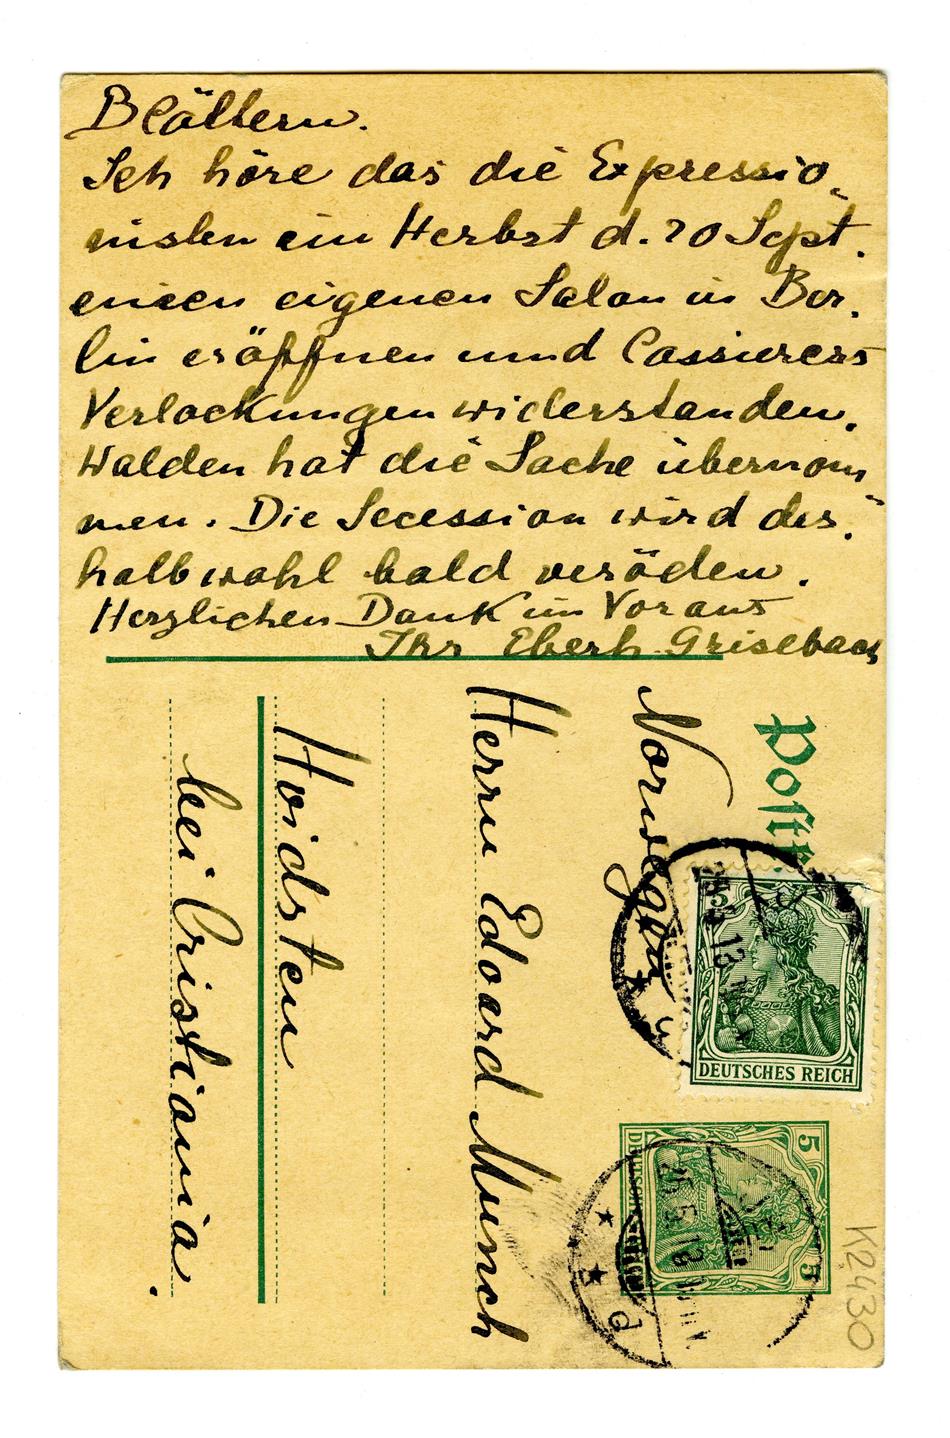 Blättern.
Ich höre das die Expressio-
nisten im Herbst d. 20 Sept.
einen eigenen Salon in Ber-
lin eröffnen und Cassierers
Verlockungen widerstanden.
Walden hat die Sache übernom-
men. Die Secession wird des-
halb wohl bald veröden.
Herzlichen Dank im Voraus
Ihr Eberh. Grisebach
Postk
Norwegen
Herrn Edvard Munch
Hvidsten
bei Cristiania.
5
DEUTSCHES REICH
5
5
K2430